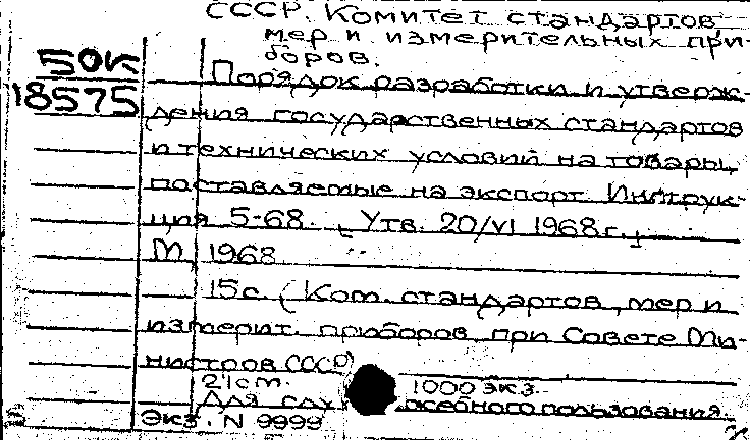 СССР. Комитет стандартов,
мер и измерительных при-
боров.
50К
18575
Порядок разработки и утверж-
дения государственных стандартов
и технических условий на товары,
поставляемые на экспорт. Инструк-
ция 5-68. Утв. 20/VI 1968г.
М, 1968
15с. (Ком. стандартов, мер и
измерит. приборов при Совете Ми-
нистров СССР)
21cm. 1000 экз.
Для служебного пользования.
Экз. N 9999